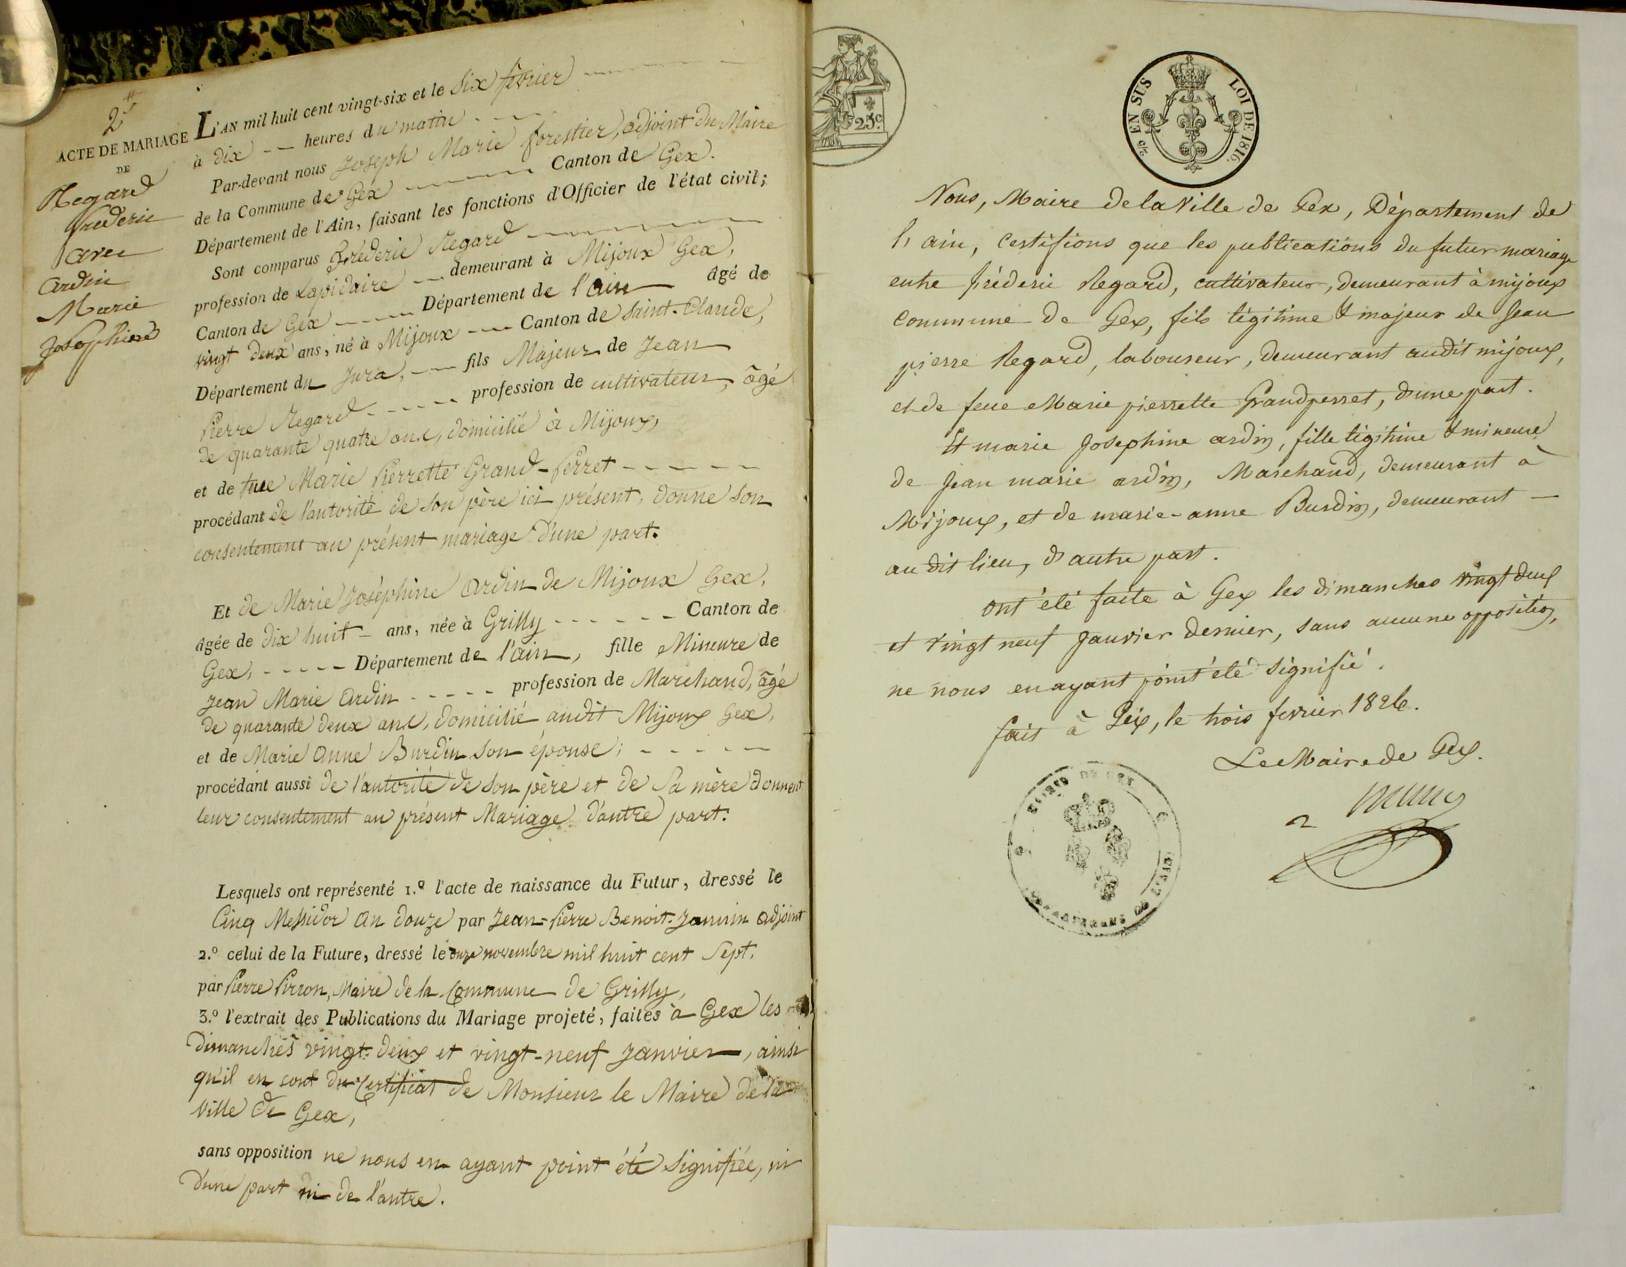 2e
ACTE DE MARIAGE
DE
Regard
frédéric
avec
Ardin
Marie
Joséphine
L'AN mil huit cent vingt-six et le Six février
à dix heures du matin
Par-devant nous Joseph Marie forestier, adjoint du Maire
de la Commune de Gex Canton de Gex.
Département de l'Ain, faisant les fonctions d'Officier de l'état civil;
Sont comparus frédéric Regard
profession de Lapidaire demeurant à Mijoux Gex,
Canton de Gex Département de l'ain âgé de
vingt deux ans, né à Mijoux Canton de Saint-Claude,
Département du Jura, fils Majeur de Jean
Pierre Regard profession de cultivateur, âgé
de quarante quatre ans, domicilié à Mijoux,
et de feue Marie Pierrette Grand-Perret
procédant de l'autorité de son père ici présent, donne son
consentement au présent mariage d'une part.
Et de Marie Joséphine Ardin de Mijoux Gex,
âgée de dix huit ans, née à Grilly Canton de
Gex, Département de l'ain, fille Mineure de
Jean Marie Ardin profession de Marchand, âgé
de quarante deux ans, domicilié audit Mijoux Gex,
et de Marie Anne Burdin son épouse;
procédant aussi de l'autorité de son père et de Sa mère donnent
leur consentement au présent Mariage d'autre part.
Lesquels ont représenté 1.º l'acte de naissance du Futur, dressé le
Cinq Messidor an douze par Jean-Pierre Benoit-Jannin adjoint
2.º celui de la Future, dressé le onze novembre mil huit cent Sept.
par Pierre Pirson, Maire de la Commune de Grilly,
3.º l'extrait des Publications du Mariage projeté, faites à Gex les
dimanches vingt-deux et vingt-neuf Janvier, ainsi
qu'il en cont du Certificat de Monsieur le Maire de la
Ville de Gex,
sans opposition ne nous en ayant point été Signifiée, ni
d'une part ni de l'autre.
25c.
EN SUS
LOI DE 1816.
Nous, Maire de la Ville de Gex, Département de
l'ain, certifions que les publications du futur mariage
entre fréderic Regard, cultivateur, demeurant à mijoux
commune de Gex, fils légitime & majeur de Jean
pierre Regard, laboureur, demeurant audit mijoux,
et de feue Marie pierrette Grandperret, d'une part.
Et marie Josephine ardin, fille légitime & mineure
de Jean marie ardin, Marchand, demeurant à
Mijoux, et de marie-anne Burdin, demeurant
au dit lieu, d'autre part.
ont été faite à Gex les dimanches vingt deux
et vingt neuf Janvier dernier, sans aucune opposition,
ne nous en ayant point été signifié.
fait à Gex, le trois fevrier 1826.
Le Maire de Gex.
DEPARTEMENT DE L'AIN